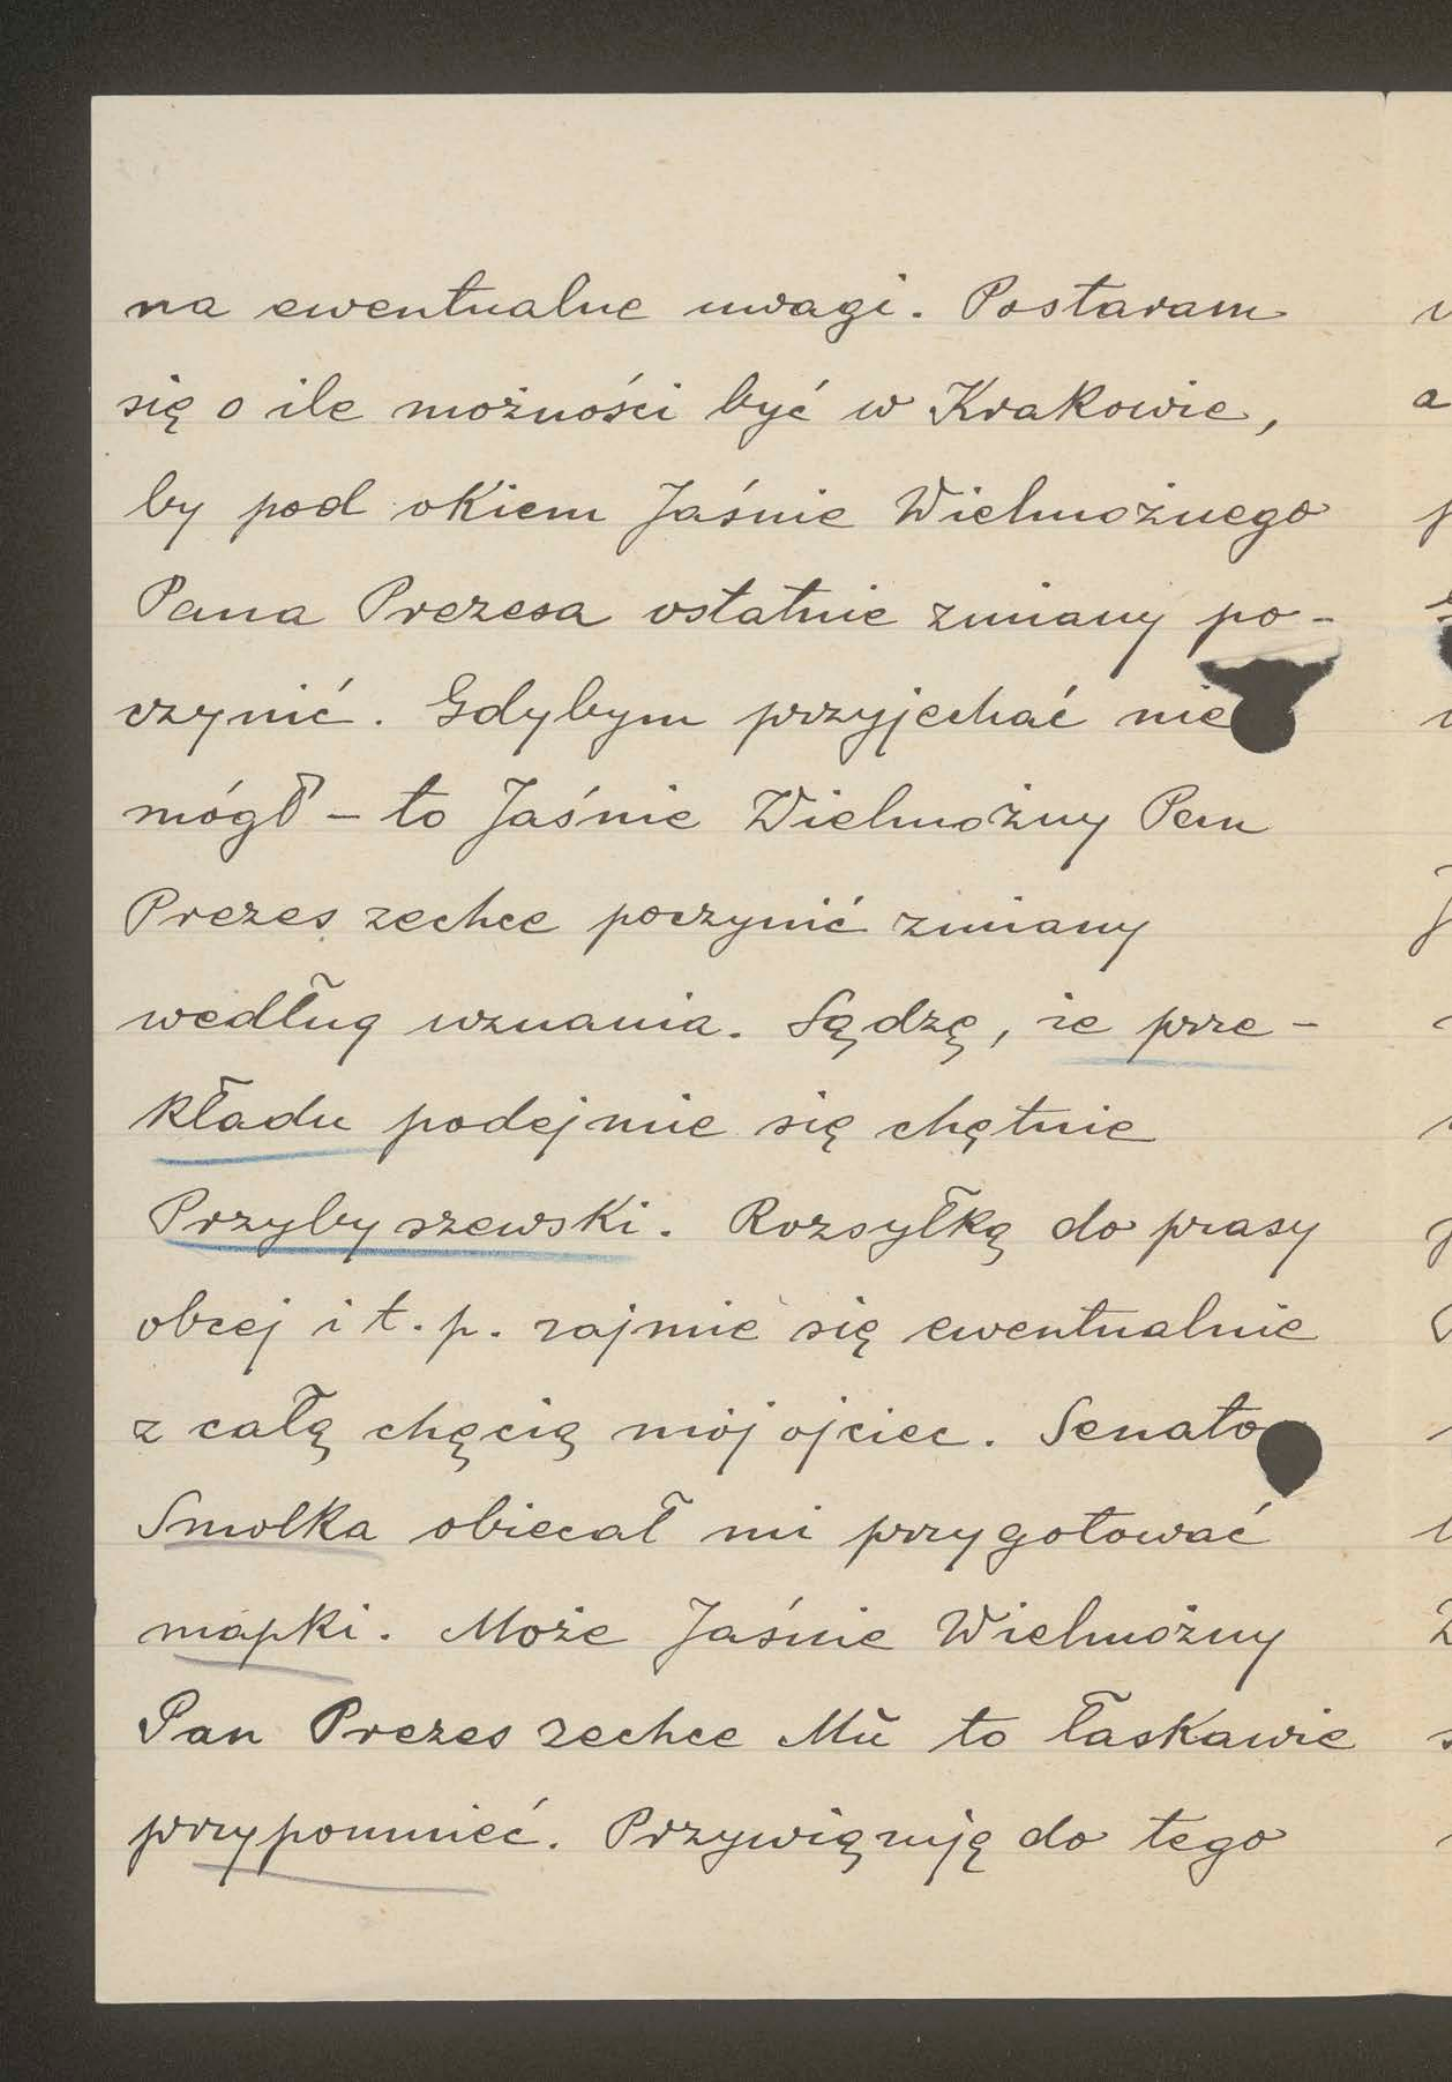 na ewentualne uwagi. Postaram
się o ile możności być w Krakowie,
by pod okiem Jaśnie Wielmożnego
Pana Prezesa ostatnie zmiany po-
czynić. Gdybym przyjechać nie
mógł – to Jaśnie Wielmożny Pan
Prezes zechce poczynić zmiany
według uznania. Sądzę, że prze-
kładu podejmie się chętnie
Przybyszewski. Rozsyłką do prasy
obcej i t. p. zajmie się ewentualnie
z całą chęcią mój ojciec. Senato
Smolka obiecał mi przygotować
mapki. Może Jaśnie Wielmożny
Pan Prezes zechce Mu to łaskawie
przypomnieć. Przywiązuję do tego